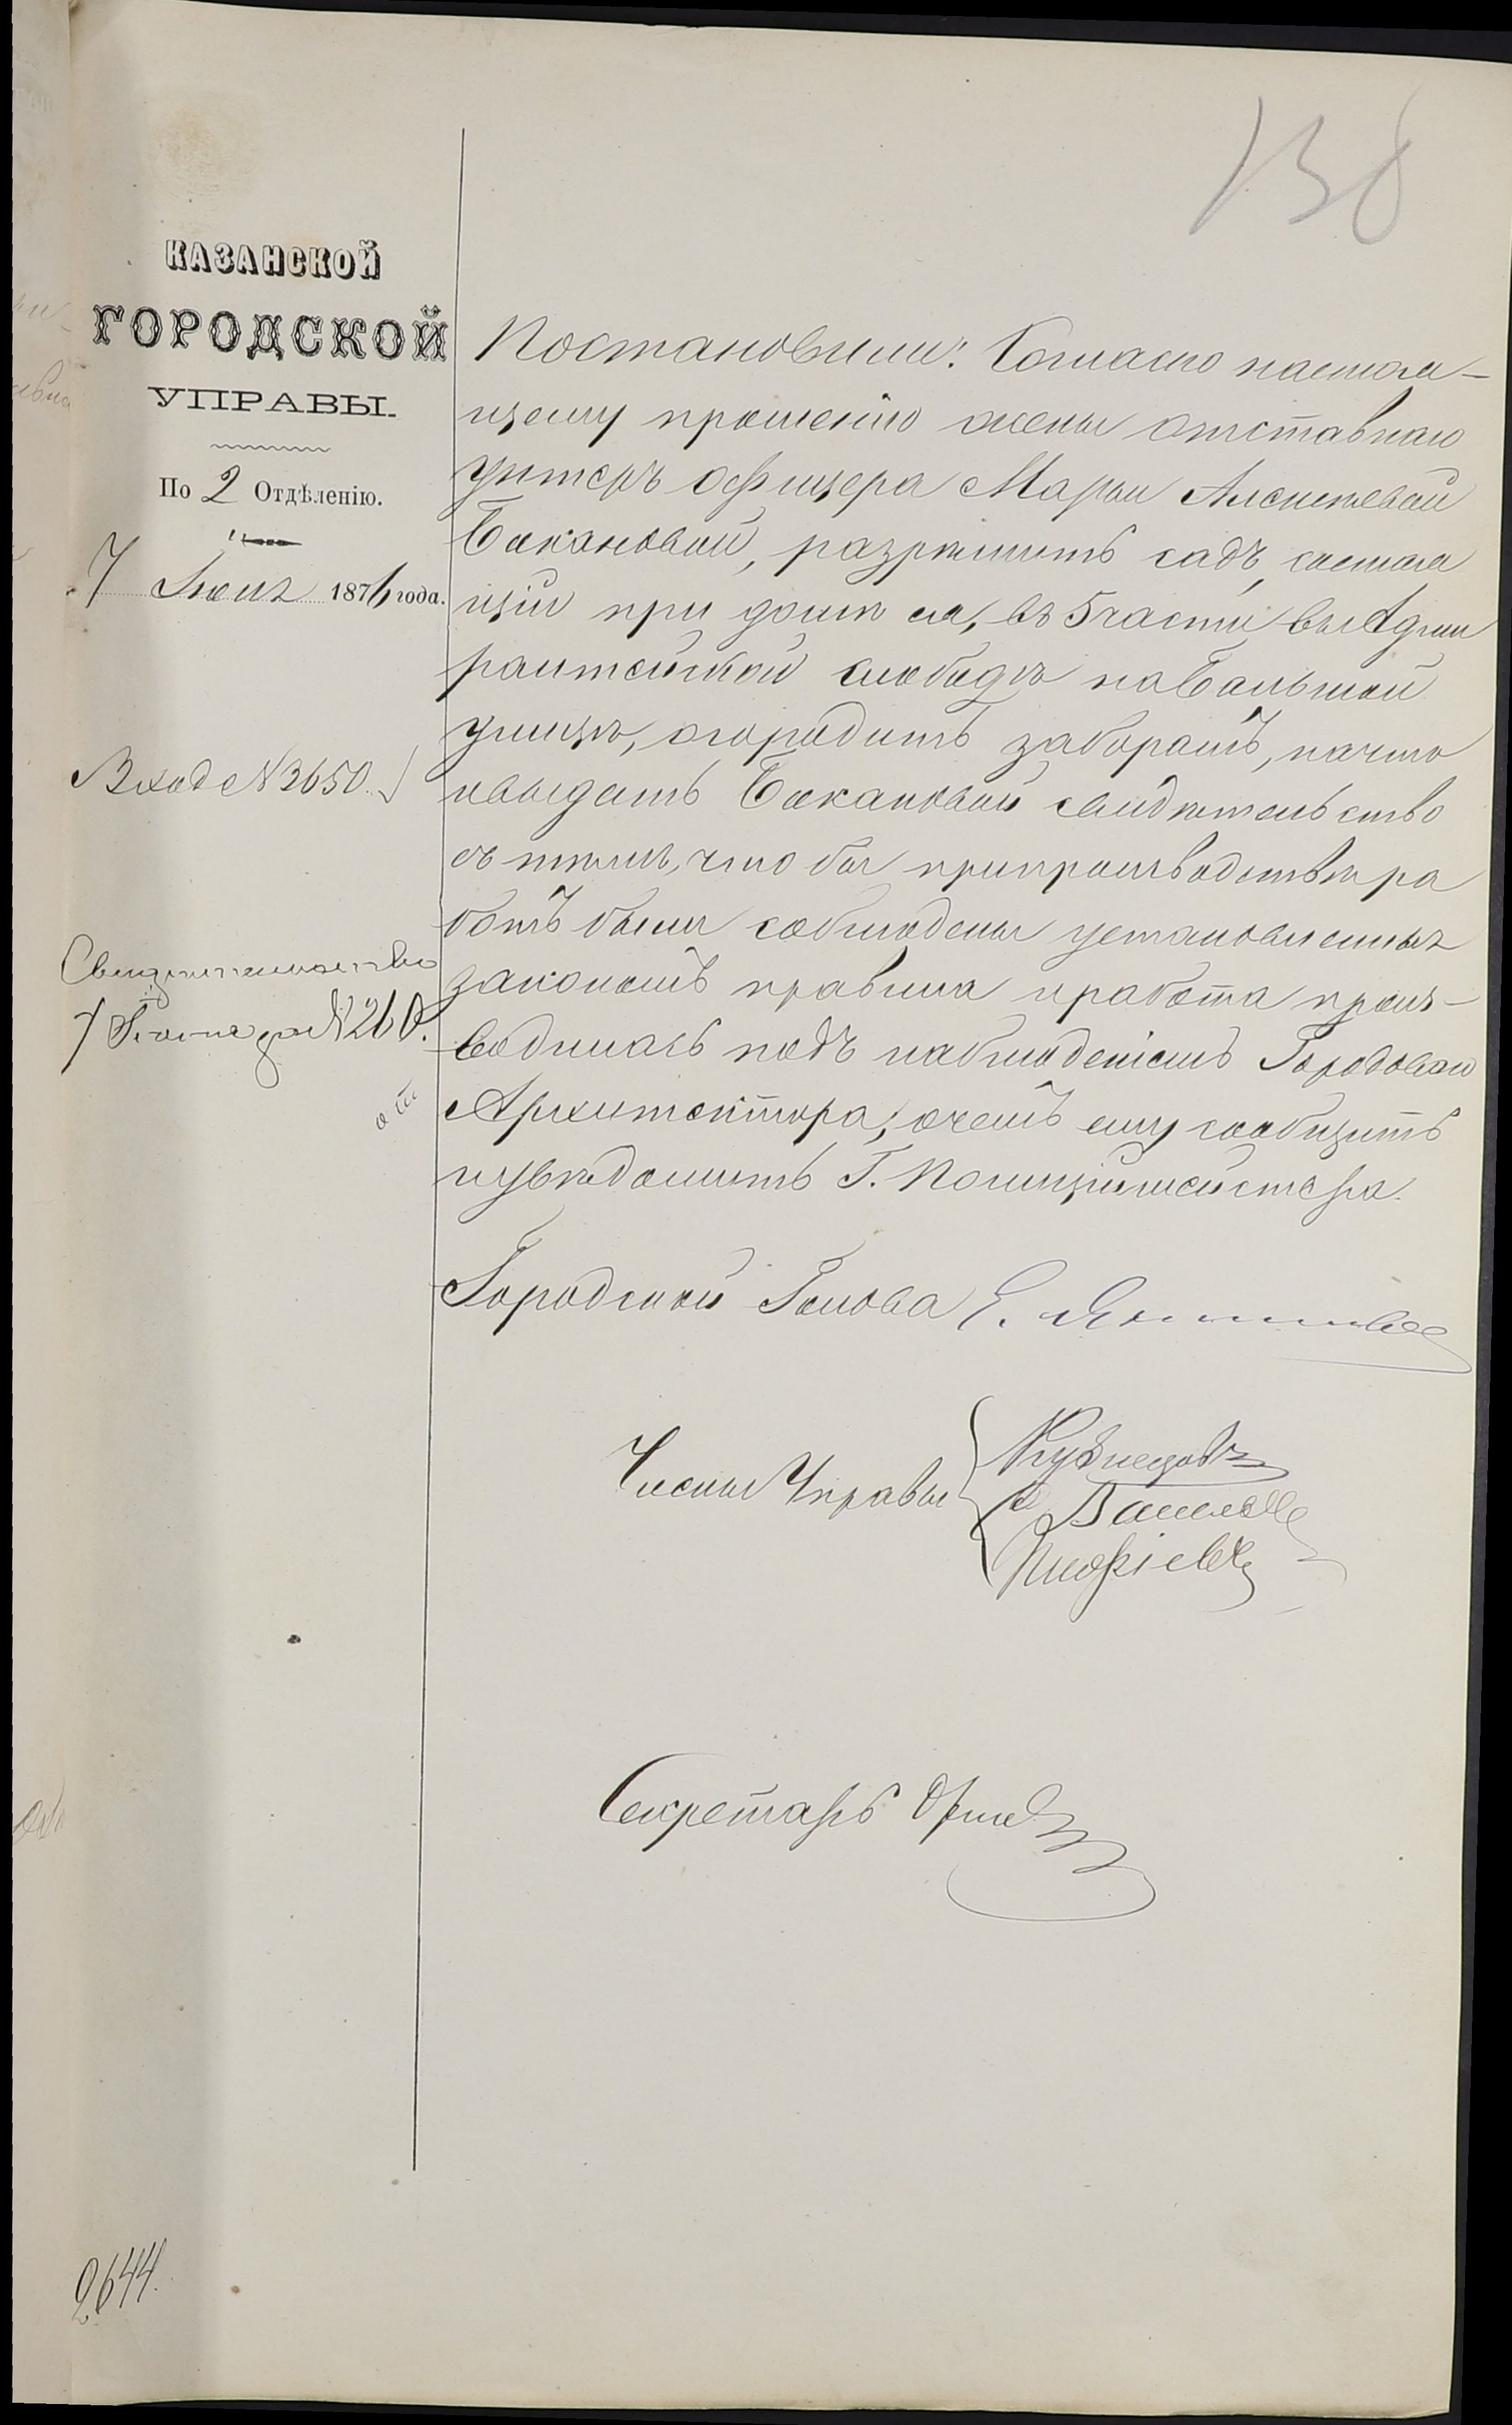 138
КАЗАНСКОЙ
ГОРОДСКОЙ
УПРАВЫ.
По 2 Отдѣленію.
7 Іюня 1876 года.
Вход № 3650.
Свидетельство
7 Іюня за № 260.
2644.
Постановили: Согласно настоя-
щему прошенію жены отставнаго
унтеръ офицера Марьи Алексѣевой
Бакановой, разрѣшить садъ, состоя
щій при домѣ ея, въ 5 части въ Адми
ралтейской слободѣ на Большой
улицѣ, огородить заборомъ, на что
и выдать Бакановой свидѣтельство
съ тѣмъ, что бы при производствѣ ра
ботъ были соблюдены установленныя
закономъ правила и работа произ-
водилась подъ наблюденіемъ Городоваго
Архитектора, о чемъ ему сообщить
и увѣдомить Г. Полиціймейстера.
Городской Голова Е.
Члены Управы Кузнецовъ
Секретарь